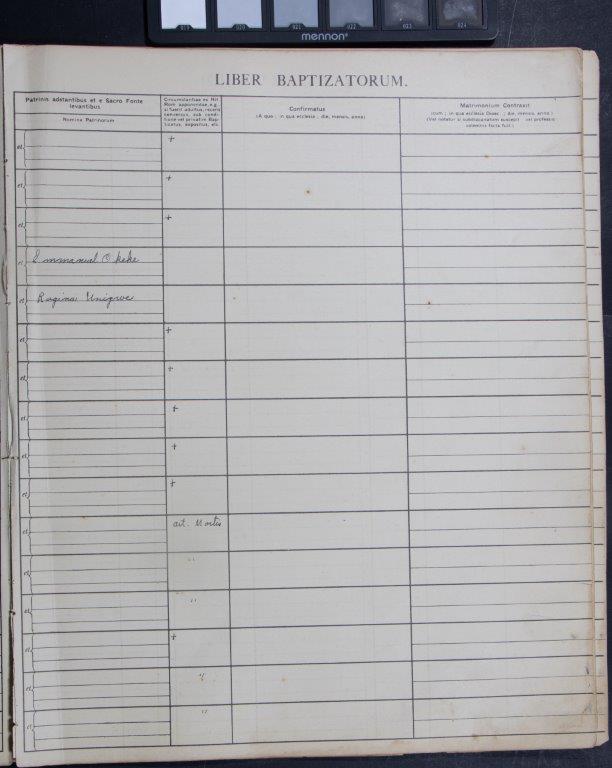 019 020 021 022 023 024
mennon
LIBER BAPTIZATORUM.
Patrinis adstantibus et e Sacro Fonte
levantibus
Nomina Patrinorum
Circumstantiae ex Rit.
Rom. apponendae, e.g.
si fuerit adultus, recens
conversus, sub condi-
tione vel privatim Bap-
tizatus, expositus, etc.
Confirmatus
(A quo ; in qua ecclesia ; die, mensis, anno)
Matrimonium Contraxit
(cum ; in qua ecclesia Dioec. ; die, mensis, anno)
(Vel notetur si subdiaconatum suscepit vel professio
solemnis facta fuit)
et +
et +
et +
et Emmanuel Okeke
et Regina
et +
et +
et +
et +
et +
et art. Mortis
et "
et "
et +
et "
et "